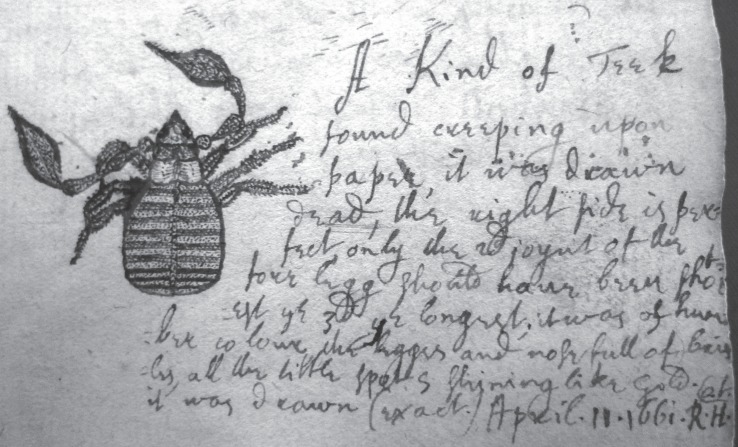 A Kind of Teek
found creeping upon
paper, it was drawn
dead, the right side is per=
fect, only the 2d joynt of the
fore legg should have been short
est ye 3d ye longest. it was of
ber colour, the legges and nose full of bris
les, all the little spots shining like gold.
it was drawn (exact.) April. 11. 1661. R. H.